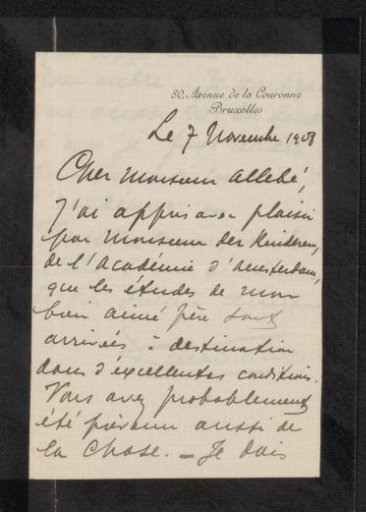 80, Avenue de la Couronne
Bruxelles
Le 7 Novembre 1908
Cher Monsieur Allebé,
J'ai appris avec plaisir
par Monsieur der Kinderen,
de l'Académie d'Amsterdam,
que les études de mon
bien aimé père sont
arrivées à destination
dans d'excellentes conditions.
Vous avez probablement
été prévenu aussi de
la chose. — Je dois